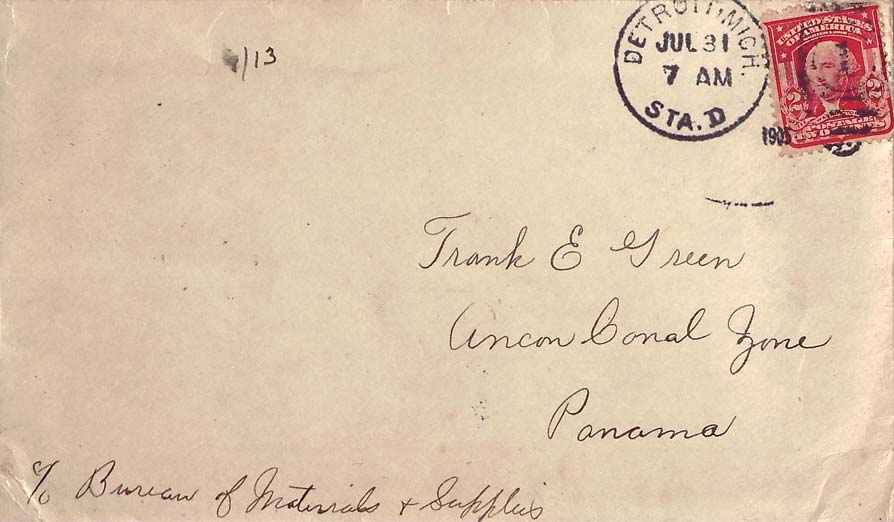 /13
DETROIT, MICH.
JUL 31
7 AM
STA. D
UNITED STATES
OF AMERICA
2 2
POSTAGE
TWO CENTS
Frank E Green
Ancon Canal Zone
Panama
c/o Bureau of Materials & Supplies